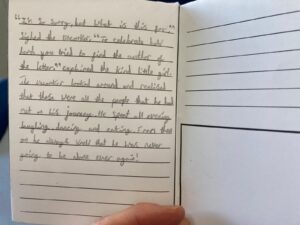 "I'm so sorry, but what is this for,"
sighed the
"To celebrate how
hard you tried to find the author of
the letter," explained the kind little girl.
The looked around and realised
that these were all the people that he had
met on his journey. He spent all evening
laughing, dancing and eating. From then
on he always knew that he was never
going to be alone ever again!